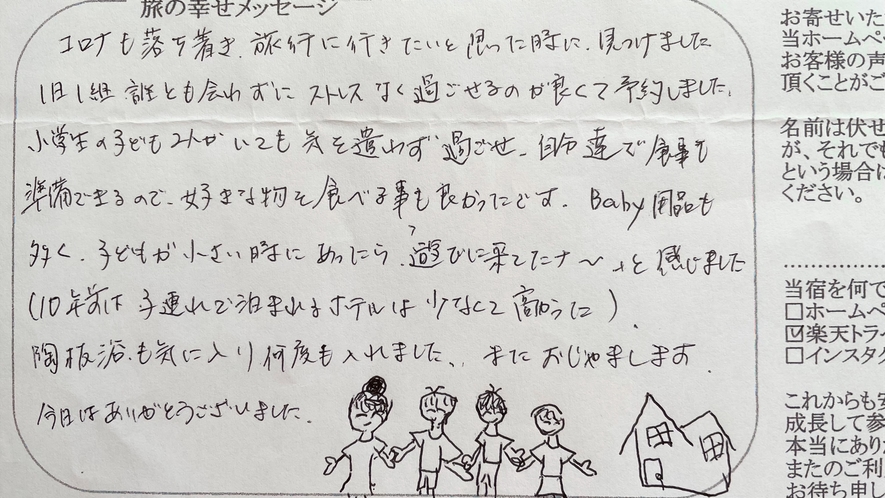 旅の幸せメッセージ
コロナも落ち着き、旅行に行きたいと思った時に、見つけました
1日1組 誰とも会わずに ストレスなく過ごせるのが良くて予約しました。
小学生の子ども2人がいても気を遣わず過ごせ、自分達で食事も
準備できるので、好きな物を食べる事も良かったです。Baby用品も
多く、子どもが小さい時にあったら、遊びに来てたナ〜、と感じました
(10年前は子連れで泊まれるホテルは少なくて高かった)。
陶板浴も気に入り何度も入れました。またおじゃまします。
今日はありがとうございました。
お寄せいた
当ホームペー
お客様の声
頂くことがご
名前は伏せ
が、それでも
という場合に
ください。
当宿を何で
□ホームペ
☑楽天トラ
□インスタグ
これからも
成長して参
本当にあり
またのご利
お待ち申し